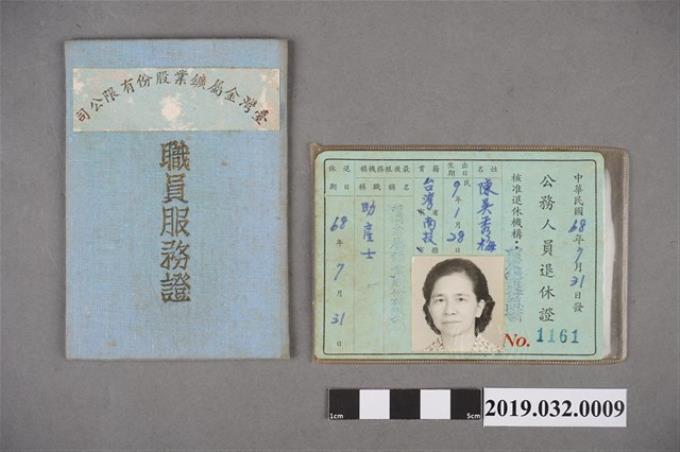 臺灣金屬鑛業股份有限公司
職員服務證
中華民國68年7月31日發
公務人員退休證
核准退休機構：
姓名
陳吳秀梅
出生日期
民
9年1月28日
籍貫
台灣省南投縣
最後服務機關名稱
職稱
助產士
退休日期
68年7月31日
No. 1161
1cm
5cm
2019.032.0009